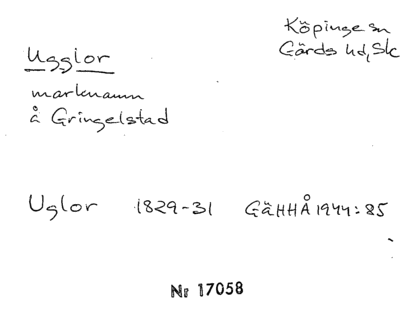 Ugglor
Köpinge sn
Gärds hd, Sk
marknamn
å Gringelstad
Uglor 1829-31 GäHHÅ 1944:85
Nr 17058